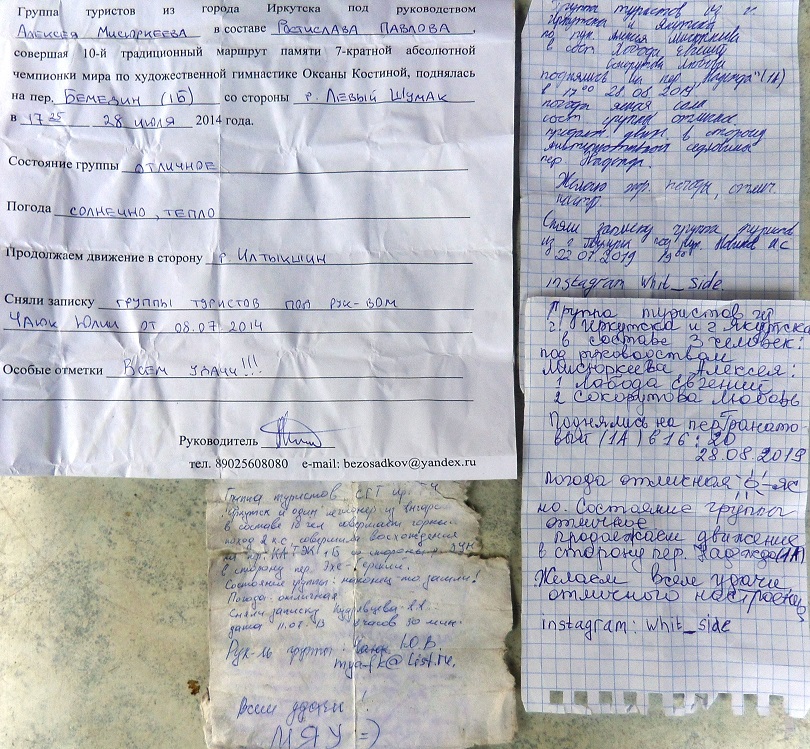 Группа туристов из города Иркутска под руководством
Алексея Мисюркеева в составе Ростислава Павлова,
совершая 10-й традиционный маршрут памяти 7-кратной абсолютной
чемпионки мира по художественной гимнастике Оксаны Костиной, поднялась
на пер. Бемедин (1Б) со стороны р. Левый Шумак
в 17 25 28 июля 2014 года.
Состояние группы отличное
Погода солнечно, тепло
Продолжаем движение в сторону р Илтыкшин
Сняли записку группы туристов под рук-вом
Чаюк Юлии от 08.07.2014
Особые отметки Всем удачи!!!
Руководитель
тел. 89025608080 e-mail: bezosadkov@yandex.ru
Группа туристов из г.
Иркутска и Якутска
под рук. Мисюркеева
в сост Лобода Евгений
Сокорутова Любовь
поднялись на пер. Надежда (1А)
в 17 00 28 08 2019
погода ясная
сост группы отличное
продолж движ в сторону
пер.
Желаю хор. погоды, отлич
Сняли записку группа туристов
из г. под рук.
22 07 2019 19 00
instagram whit_side
Группа туристов из
г. Иркутска и г Якутска
в составе 3 человек:
под руководством
Мисюркеева Алексея:
1 Лобода Евгений
2 Сокорутова Любовь
Поднялись на пер Гранато
вый (1А) в 16:20
28.08.2019
Погода отличная -яс
но. Состояние группы
отличное
продолжаем движение
в сторону пер. Надежда (1А)
Желаем всем удачи
отличного настроения
instagram: whit_side
Группа туристов СГТ
Иркутск и один из Ангарс
в составе 10 чел совершает горный
поход 2 к.с, совершила восхождение
на пр. КАТЭК 1Б со стороны
в сторону пер.
Состояние группы: наконец-то зашли!
Погода: отличная
Сняли записку Кудрявцева
дата 11.07.13 часов 30 мин.
Рук-ль группы: Чаюк Ю.В.
@list.ru.
Всем удачи!
МЯУ =)